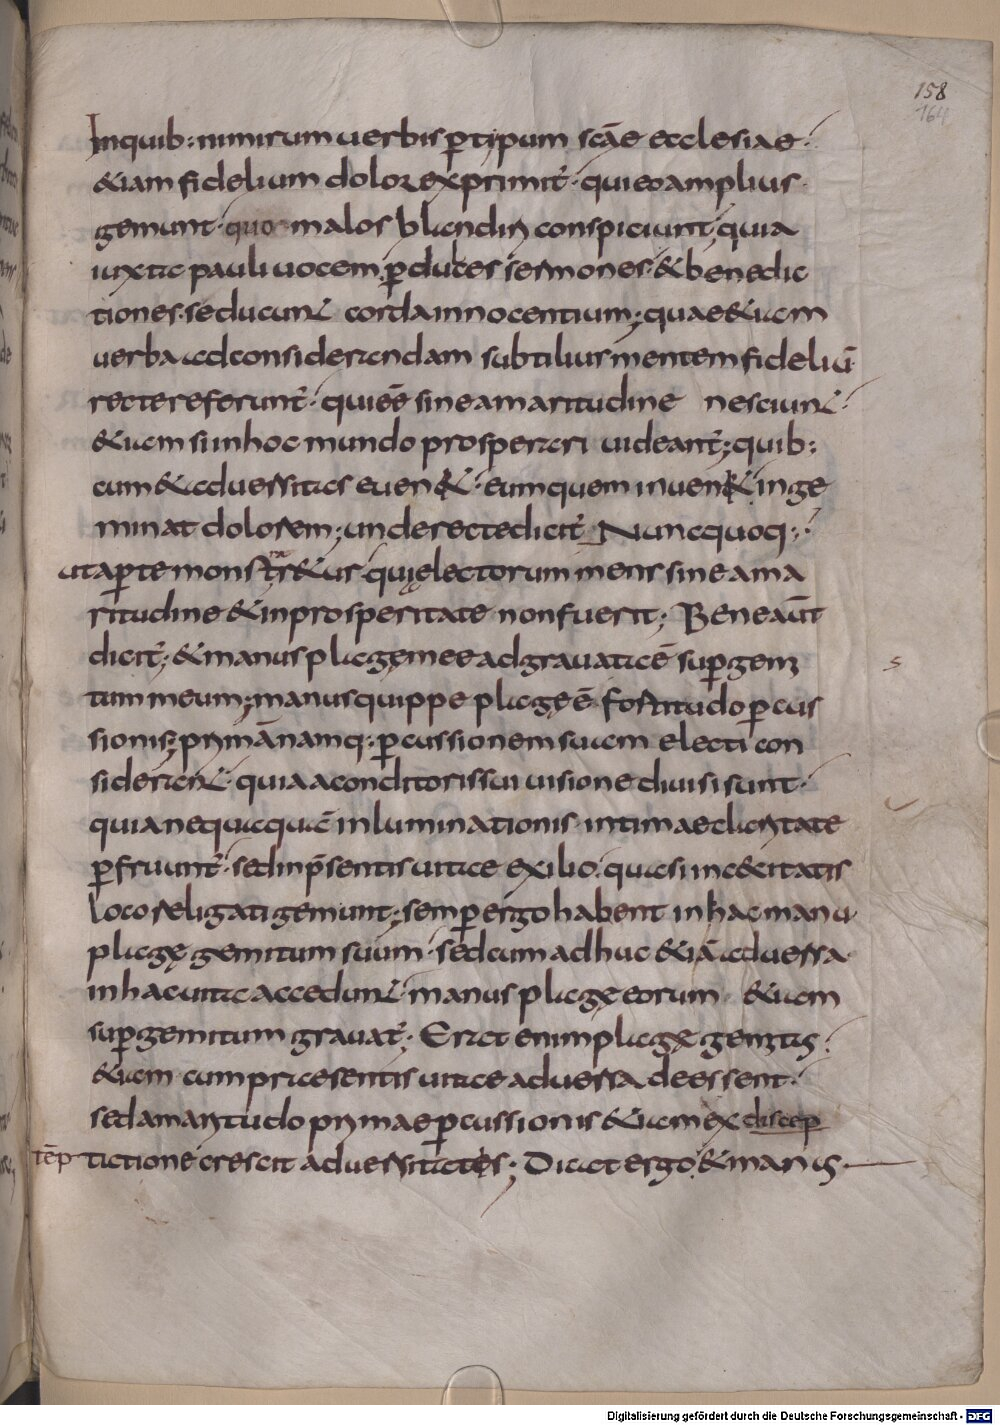 158
164
Inquib: nimirum uerbis ꝑ typum scāe ecclesiae·
&iam fidelium dolor exprimit̄· qui eo amplius·
gemunt· quo malos blandiri conspiciunt; quia
iuxta pauli uocem ꝑ dulces sermones· & benedic
tiones· seducunt corda innocentium; quae & uem
uerba ad considerandam subtilius mentem fideliū
recte referunt̄· quieē sine amaritudine nesciunt·
&uem si in hoc mundo prosperari uideant̄; quib:
cum & aduersitas euen&· eumquem inuen& inge
minat dolorem; unde recte dicit̄ Nunc quoq·
ut aꝑte monstr&ur· qui electorum mens sine ama
ritudine & in prosperitate non fuerit; Bene aūt
dicit̄; & manus plagę meae adgrauata ē suꝑ gemi
tum meum; manus quippe plagę ē· fortitudo ꝑcus
sionis; primā namq· ꝑcussionem suam electi con
siderant· quia a conditoris sui uisione diuisi sunt·
quia nequaquā inluminationis· intimae claritate
ꝑfruunt̄· sed in p̄sentis uitae exilio· quasi in cecitatis
loco religati gemunt; semꝑ ergo habent in hac manu
plagę gemitum suum· sed cum adhuc &iā aduersa
in hac uita accedunt· manus plagę eorum &uem
suꝑ gemitum grauat̄· Erat enim plagę gemitus·
&uem cum praesentis uitae aduersa deessent·
sed amaritudo primae ꝑcussionis &uem ex discep
tēp tatione crescit aduersitates; Dicat ergo· & manus
Digitalisierung gefördert durch die Deutsche Forschungsgemeinschaft - DFG